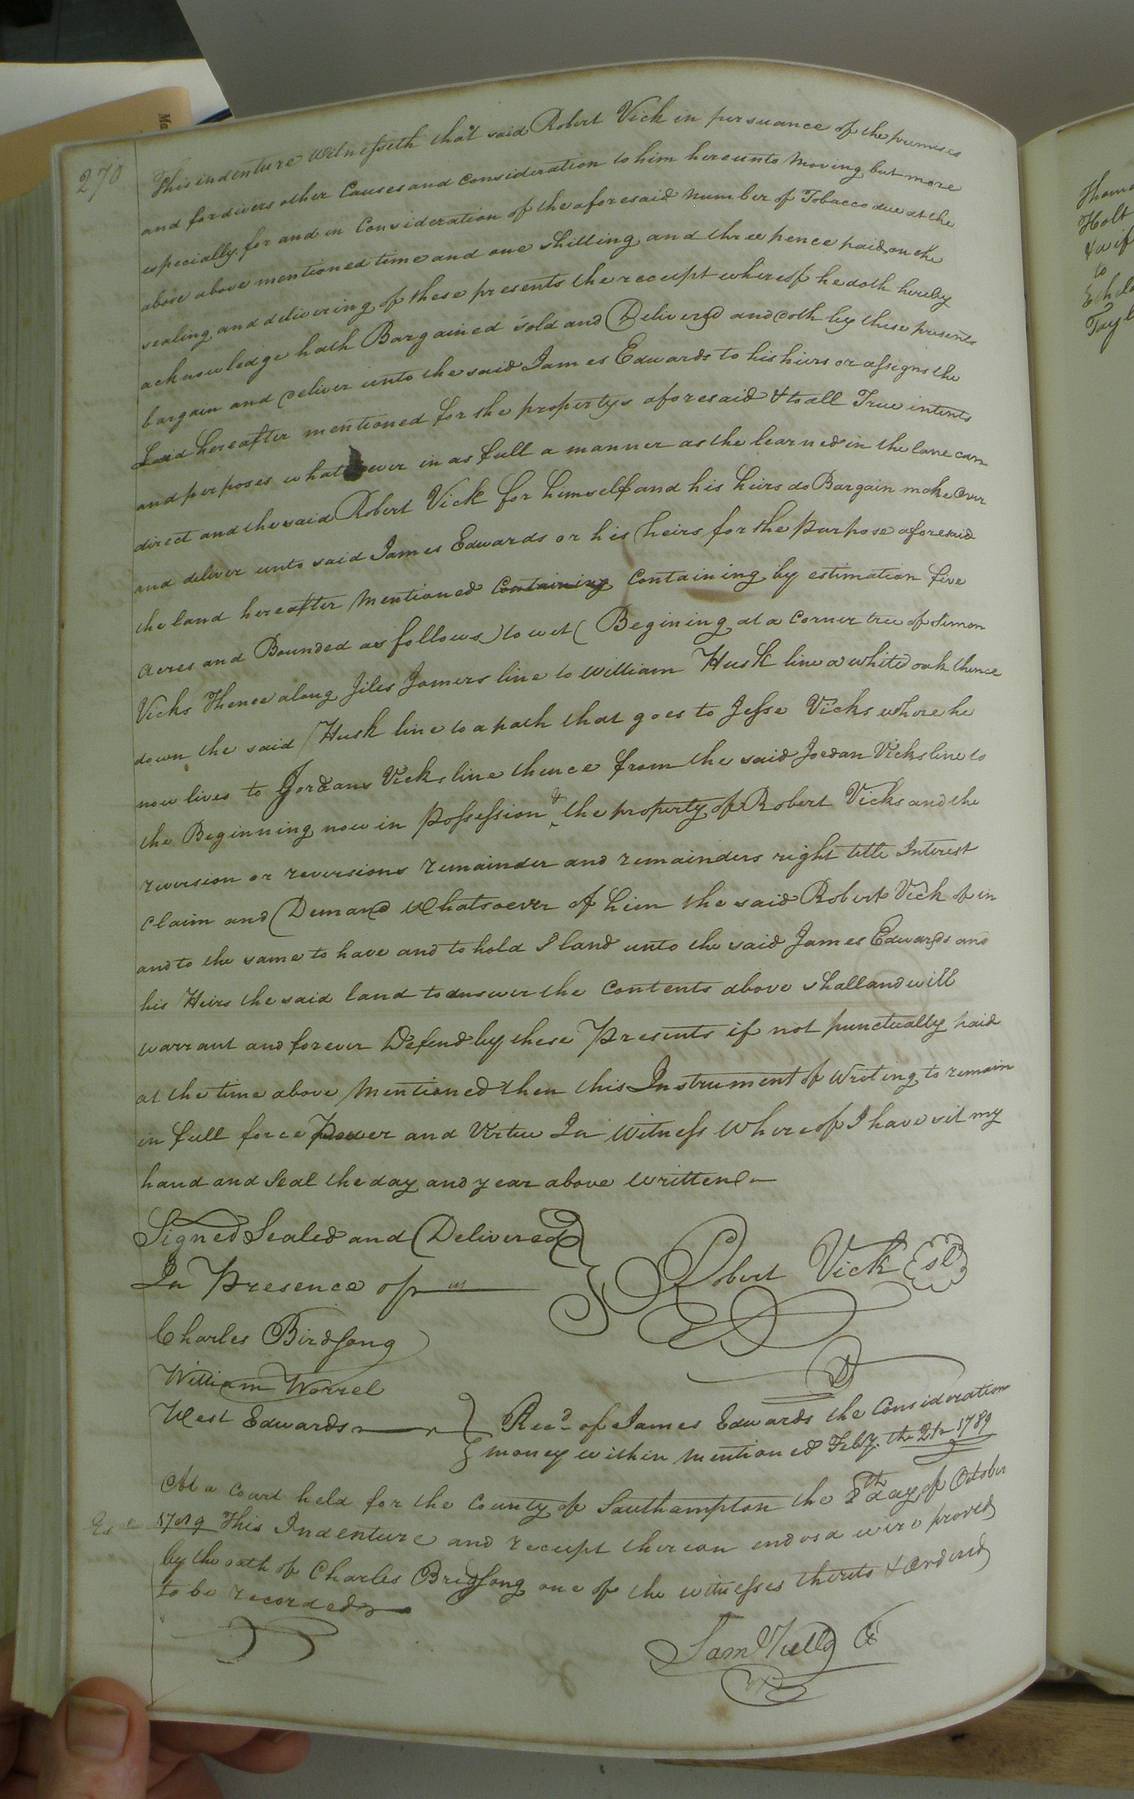 270
This indenture Witnesseth that said Robert Vick in pursuance of the premises
and for divers other Causes and Consideration to him hereunto Moving but more
especially for and in Consideration of the aforesaid number of Tobacco due at the
above above mentioned time and one Shilling and three pence paid on the
sealing and delivering of these presents the receipt whereof he doth hereby
acknowledge hath Bargained sold and Delivered and doth by these presents
bargain and deliver unto the said James Edwards to his heirs or assigns the
Land hereafter mentioned for the propertys aforesaid & to all True intents
and purposes whatsoever in as full a manner as the learned in the law can
direct and the said Robert Vick for himself and his heirs do Bargain make Over
and deliver unto said James Edwards or his heirs for the purpose aforesaid
the land hereafter Mentioned Containing Containing by estimation five
Acres and Bounded as follows) to wit ( Begining at a Corner tree of Simon
Vicks Thence along Jiles Joiners line to William Husk line a white oak thence
down the said Husk line to a path that goes to Jesse Vicks where he
now lives to Jordans Vicks line thence from the said Jordan Vicks line to
the Beginning now in Possession & the property of Robert Vicks and the
reversion or reversions remainder and remainders right title Interest
Claim and Demand Whatsoever of him the said Robert Vick of in
and to the same to have and to hold S land unto the said James Edwards and
his Heirs the said land to answer the Contents above shall and will
warrant and forever Defend by these Presents if not punctually paid
at the time above Mentioned then this Instrument of Writing to remain
in full force Power and Virtue In Witness Whereof I have set my
hand and Seal the day and year above written
Signed Sealed and Delivered
In Presence of us
Robert Vick sl
Charles Birdsong
William Worrel
West Edwards
Recd. of James Edwards the Consideration
money within mentioned Feby. the 21st 1789
At a Court held for the County of Southampton the 8th day of October
1789 This Indenture and receipt thereon endosd were proved
by the oath of Charles Bridsong one of the witnesses thereto & Ordered
to be recorded
Sam Kello Ck
Thoma
Holt
& wif
to
Tayl
Ma